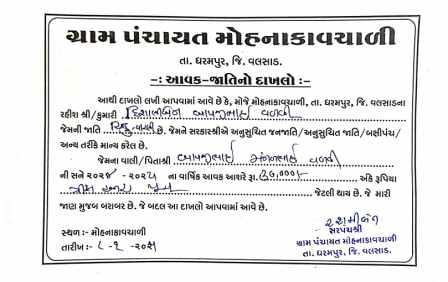 ગ્રામ પંચાયત મોહનાકાવચાળી
તા. ધરમપુર, જિ. વલસાડ.
-ઃ આવક-જાતિનો દાખલો ઃ-
આથી દાખલો લખી આપવામાં આવે છે કે, મોજે મોહનાકાવચાળી, તા. ધરમપુર, જિ. વલસાડના
રહીશ શ્રી/કુમારી
જેમની જાતિ છે. જેમને સરકારશ્રીએ અનુસુચિત જનજાતિ/અનુસુચિત જાતિ/બક્ષીપંચ/
અન્ય તરીકે માન્ય કરેલ છે.
જેમના વાલી/પિતાશ્રી
ની સને ૨૦૨૪ - ૨૦૨૫ ના વાર્ષિક આવક આશરે રૂા. અંકે રૂપિયા
જેટલી થાય છે. જે મારી
જાણ મુજબ બરાબર છે. જે બદલ આ દાખલો આપવામાં આવે છે.
સ્થળ ઃ- મોહનાકાવચાળી
તારીખ ઃ-
સરપંચશ્રી
ગ્રામ પંચાયત મોહનાકાવચાળી
તા. ધરમપુર, જિ. વલસાડ.